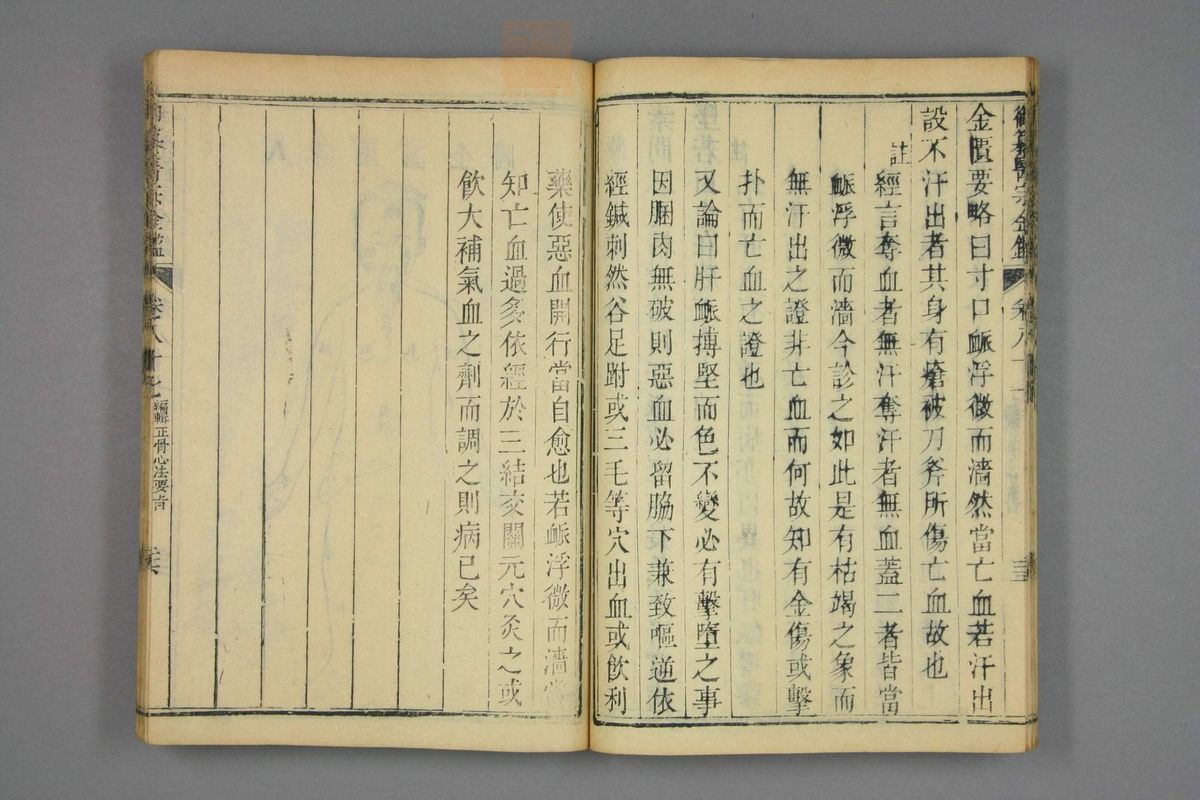 御纂醫宗金鑑 卷八十七
金匱要略曰寸口脈浮微而濇然當亡血若汗出
設不汗出者其身有瘡被刀斧所傷亡血故也
註
經言奪血者無汗奪汗者無血蓋二者皆當
脈浮微而濇今診之如此是有枯竭之象而
無汗出之證非亡血而何故知有金傷或擊
扑而亡血之證也
又論曰肝脈搏堅而色不變必有擊墮之事
因䐃肉無破則惡血必留脇下兼致嘔逆依
經鍼刺然谷足跗或三毛等穴出血或飲利
藥使惡血開行當自愈也若脈浮微而濇當
知亡血過多依經於三結交關元穴灸之或
飲大補氣血之劑而調之則病已矣
御纂醫宗金鑑 卷八十七 編輯正骨心法要旨